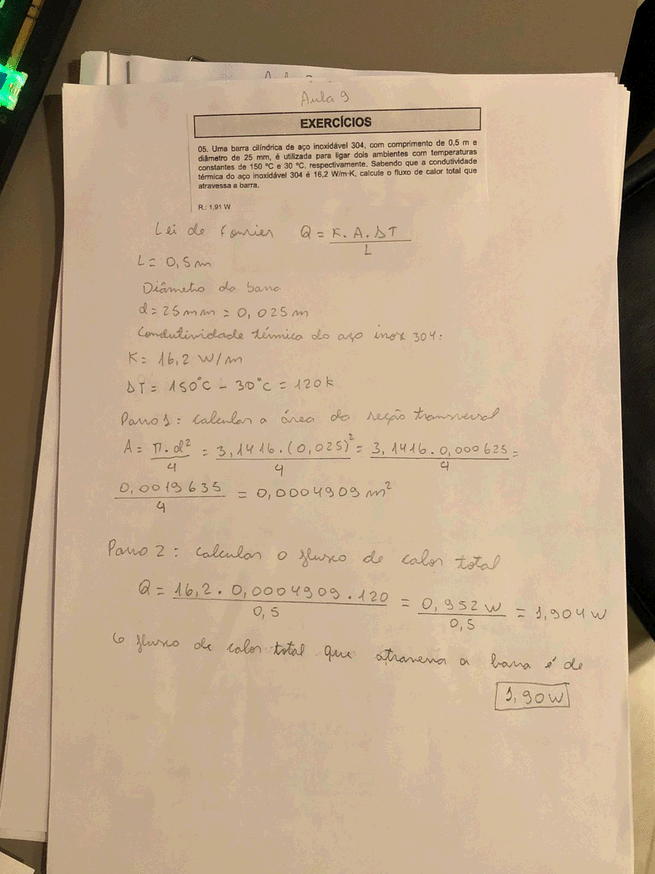 Aula 9
EXERCÍCIOS
05. Uma barra cilíndrica de aço inoxidável 304, com comprimento de 0,5 m e
diâmetro de 25 mm, é utilizada para ligar dois ambientes com temperaturas
constantes de 150 °C e 30 °C, respectivamente. Sabendo que a condutividade
térmica do aço inoxidável 304 é 16,2 W/m·K, calcule o fluxo de calor total que
atravessa a barra.
R.: 1,91 W
Lei de Fourier Q = K. A. ΔT / L
L = 0,5 m
Diâmetro da barra
d = 25 mm = 0,025 m
Condutividade térmica do aço inox 304:
K = 16,2 W/m
ΔT = 150°C - 30°C = 120 k
Passo 1: calcular a área da seção transversal
A = π. d² / 4 = 3,1416. (0,025)² / 4 = 3,1416. 0,000625 / 4 =
0,0019635 / 4 = 0,0004909 m²
Passo 2: calcular o fluxo de calor total
Q = 16,2. 0,0004909. 120 / 0,5 = 0,952 W / 0,5 = 1,904 W
O fluxo de calor total que atravessa a barra é de
1,90 W